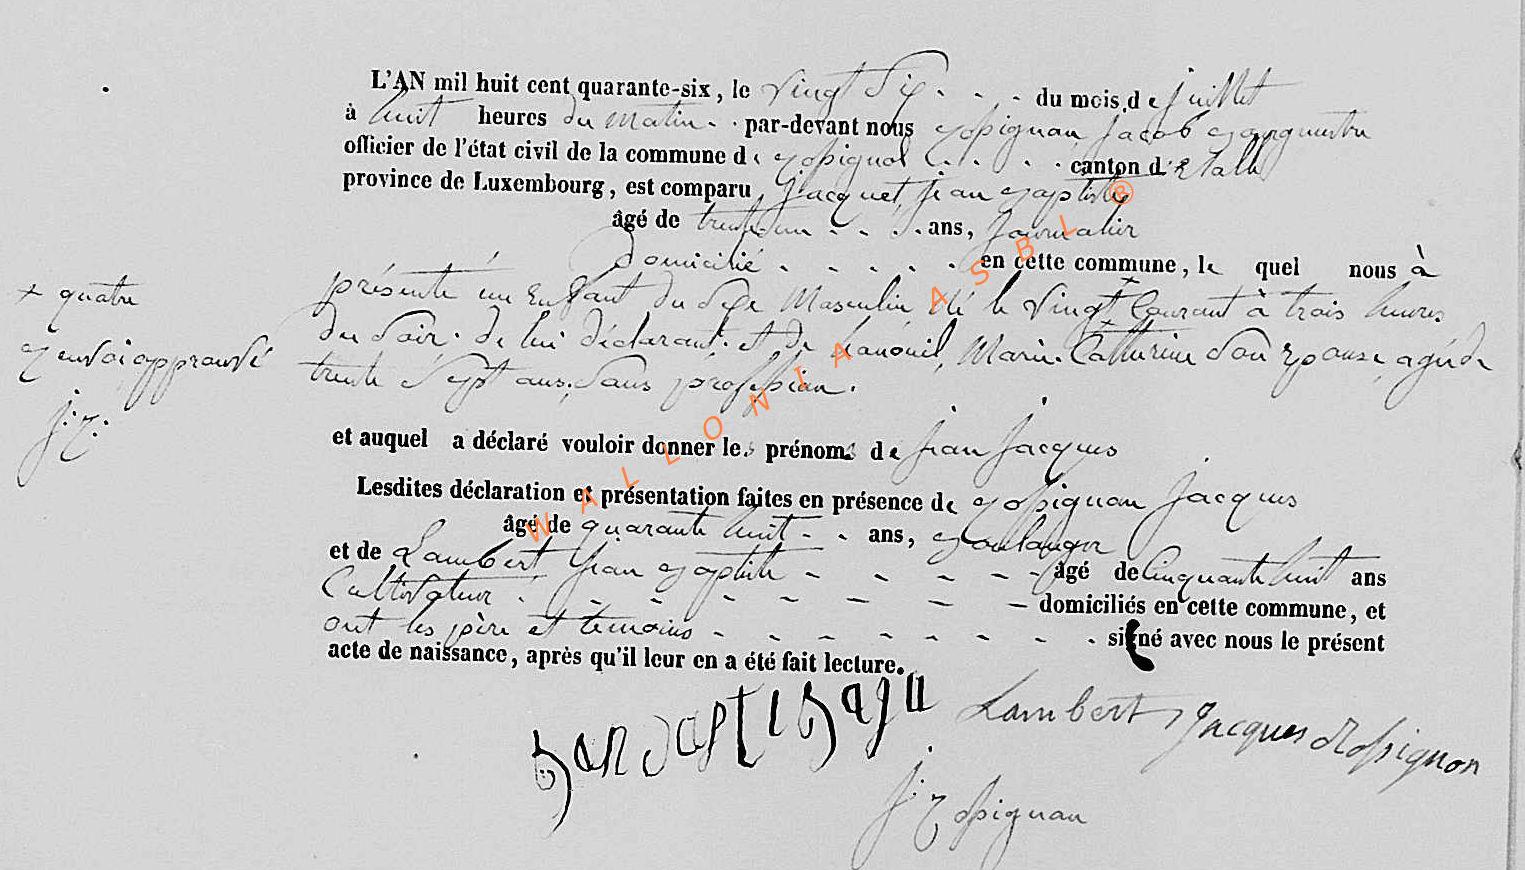 L'AN mil huit cent quarante-six, le vingt Six - - - du mois de juillet
à huit heures du matin - - par-devant nous Rossignon Jacob Bourgmestre
officier de l'état civil de la commune de Rossignol - - - - canton d'Etalle
province de Luxembourg, est comparu Jacquet jean Baptiste
âgé de trente un - - - ans, journalier
domicilié - - - - - en cette commune, le quel nous à
présenté un Enfant du Sexe Masculin né le Vingt + Courant à trois heures
+ quatre
du Soir. de lui déclarant. et de Marie. Catherine Son Epouse, agée de
Renvoi approuvé
trente Sept ans, Sans profession.
j. R.
et auquel a déclaré vouloir donner les prénoms de jean jacques
Lesdites déclaration et présentation faites en présence de Rossignon jacques
âgé de quarante huit - - ans, Boulanger
et de Lambert jean Baptiste - - - - - âgé de Cinquante huit ans
Cultivateur - - - - - - - domiciliés en cette commune, et
ont les père et temoins - - - - - - - - signé avec nous le présent
acte de naissance, après qu'il leur en a été fait lecture.
Lambert Jacques Rossignon
j. Rossignon
WALLONIA ASBL ®